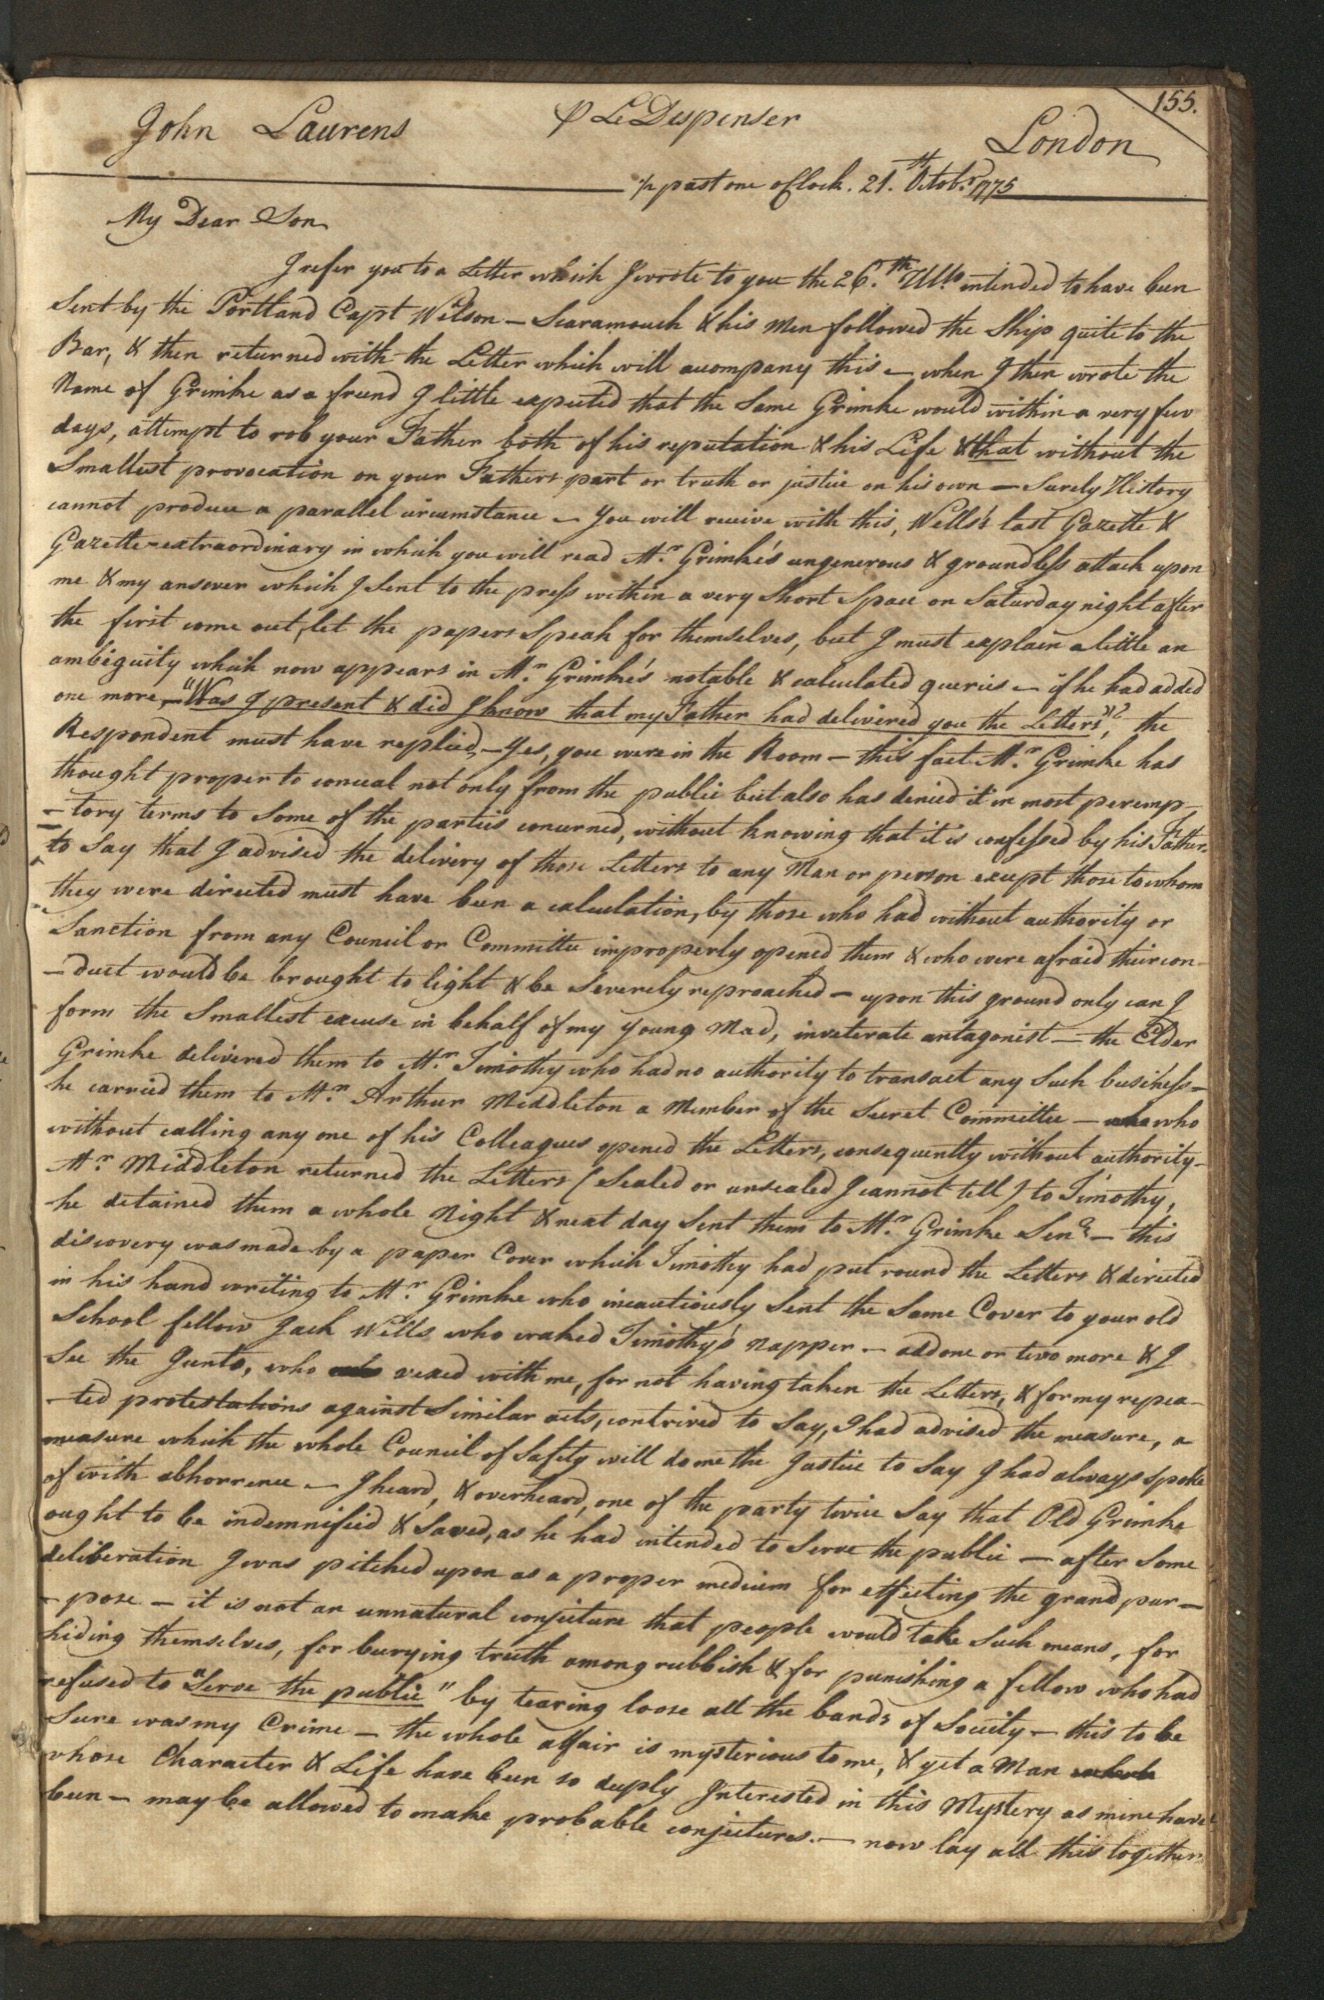 155.
John Laurens ⅌ Le Despenser London
½ past one oClock. 21.th Octobr. 1775
My Dear Son
I refer you to a Letter which I wrote to you the 26.th Ulto. intended to have been
Sent by the Portland Capt Wilson — Scaramouch & his Men followed the Ship quite to the
Bar, & then returned with the Letter which will accompany this — when I then wrote the
Name of Grimke as a friend I little expected that the Same Grimke would within a very few
days, attempt to rob your Father both of his reputation & his Life & that without the
Smallest provocation on your Fathers part or truth or justice on his own — Surely History
cannot produce a parallel circumstance — You will receive with this, Wells's last Gazette &
Gazette-extraordinary in which you will read Mr. Grimke's ungenerous & groundless attack upon
me & my answer which I Sent to the press within a very Short Space on Saturday night after
the first come out, let the papers Speak for themselves, but I must explain a little an
ambiguity which now appears in Mr. Grimke's notable & calculated queries — if he had added
one more, — "Was I present & did I know that my Father had delivered you the Letters"? the
Respondent must have replied, — Yes, you were in the Room — this fact Mr. Grimke has
thought proper to conceal not only from the public but also has denied it in most peremp-
-tory terms to Some of the parties concerned, without knowing that it is confessed by his Father.
to Say that I advised the delivery of those Letters to any Man or person except those to whom
they were directed must have been a calculation, by those who had without authority or
Sanction from any Council or Committee improperly opened them & who were afraid their con-
-duct would be brought to light & be Severely reproached — upon this ground only can I
form the Smallest excuse in behalf of my young Mad, inveterate antagonist — the Elder
Grimke delivered them to Mr. Timothy who had no authority to transact any Such business —
he carried them to Mr. Arthur Middleton a Member of the Secret Committee — who
without calling any one of his Colleagues opened the Letters, consequently without authority —
Mr. Middleton returned the Letters (Sealed or unsealed I cannot tell) to Timothy,
he detained them a whole Night & next day Sent them to Mr. Grimke Senr. — this
discovery was made by a paper Cover which Timothy had put round the Letters & directed
in his hand writing to Mr. Grimke who incautiously Sent the Same Cover to your old
School fellow Jack Wells who waked Timothy's Napper — add one or two more & I
See the Junto, who vexed with me, for not having taken the Letters, & for my repea-
-ted protestations against Similar acts, contrived to Say, I had advised the measure, a
measure which the whole Council of Safety will do me the Justice to Say I had always spoke
of with abhorrence — I heard, & overheard, one of the party twice Say that Old Grimke
ought to be indemnified & Saved, as he had intended to Serve the public — after Some
deliberation I was pitched upon as a proper medium for effecting the grand pur-
-pose — it is not an unnatural conjecture that people would take Such means, for
hiding themselves, for burying truth among rubbish & for punishing a fellow who had
refused to "Serve the public" by tearing loose all the bands of Society — this to be
Sure was my Crime — the whole affair is mysterious to me, & yet a Man
whose Character & Life have been so deeply Interested in this Mystery as mine have
been — may be allowed to make probable conjectures. — now lay all this together